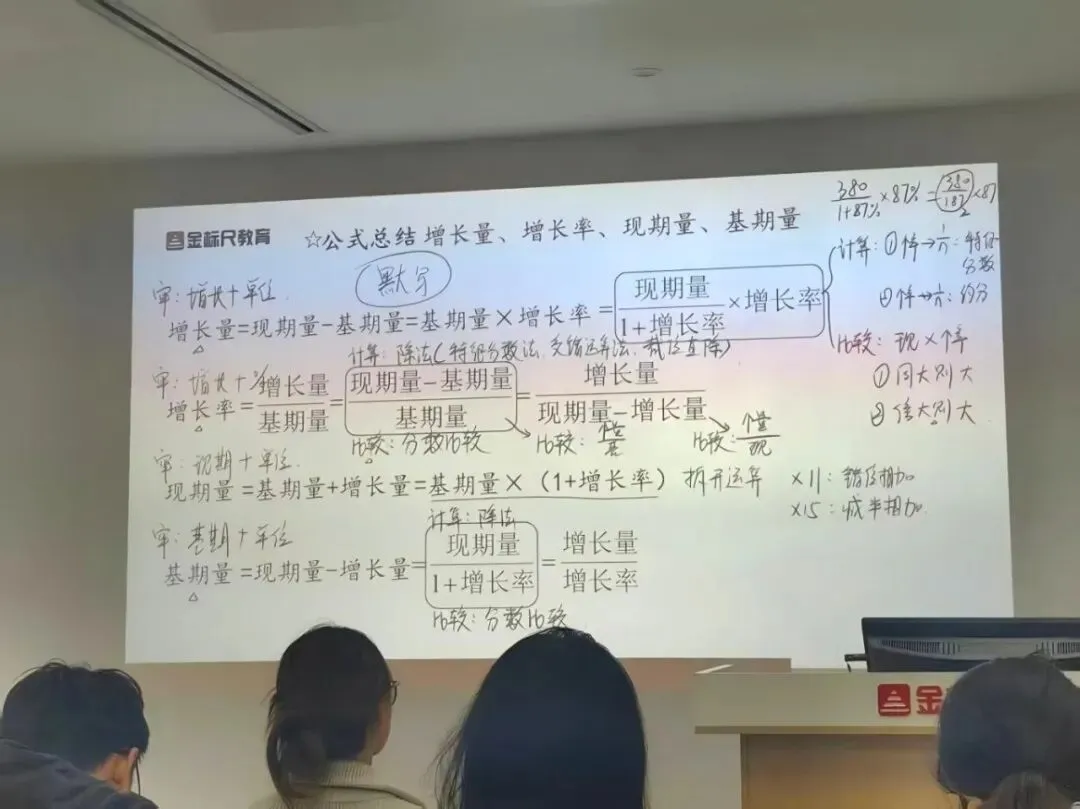 金标尺教育
☆公式总结 增长量、增长率、现期量、基期量
380/(1+87%)×87%=380/187×87
默写
审：增长+单位
增长量=现期量-基期量=基期量×增长率=现期量/(1+增长率)×增长率
计算：①
特征分数
约分
比较：现×
①同大则大
②倍大则大
计算：除法(特征分数法、
截位直除)
审：增长+%
增长率=增长量/基期量=(现期量-基期量)/基期量=增长量/(现期量-增长量)
比较：分数比较
比较：
比较：
审：现期+单位
现期量=基期量+增长量=基期量×(1+增长率) 拆开运算
×11：错位相加
×15：减半相加
审：基期+单位
计算：除法
基期量=现期量-增长量=现期量/(1+增长率)=增长量/增长率
比较：分数比较
金